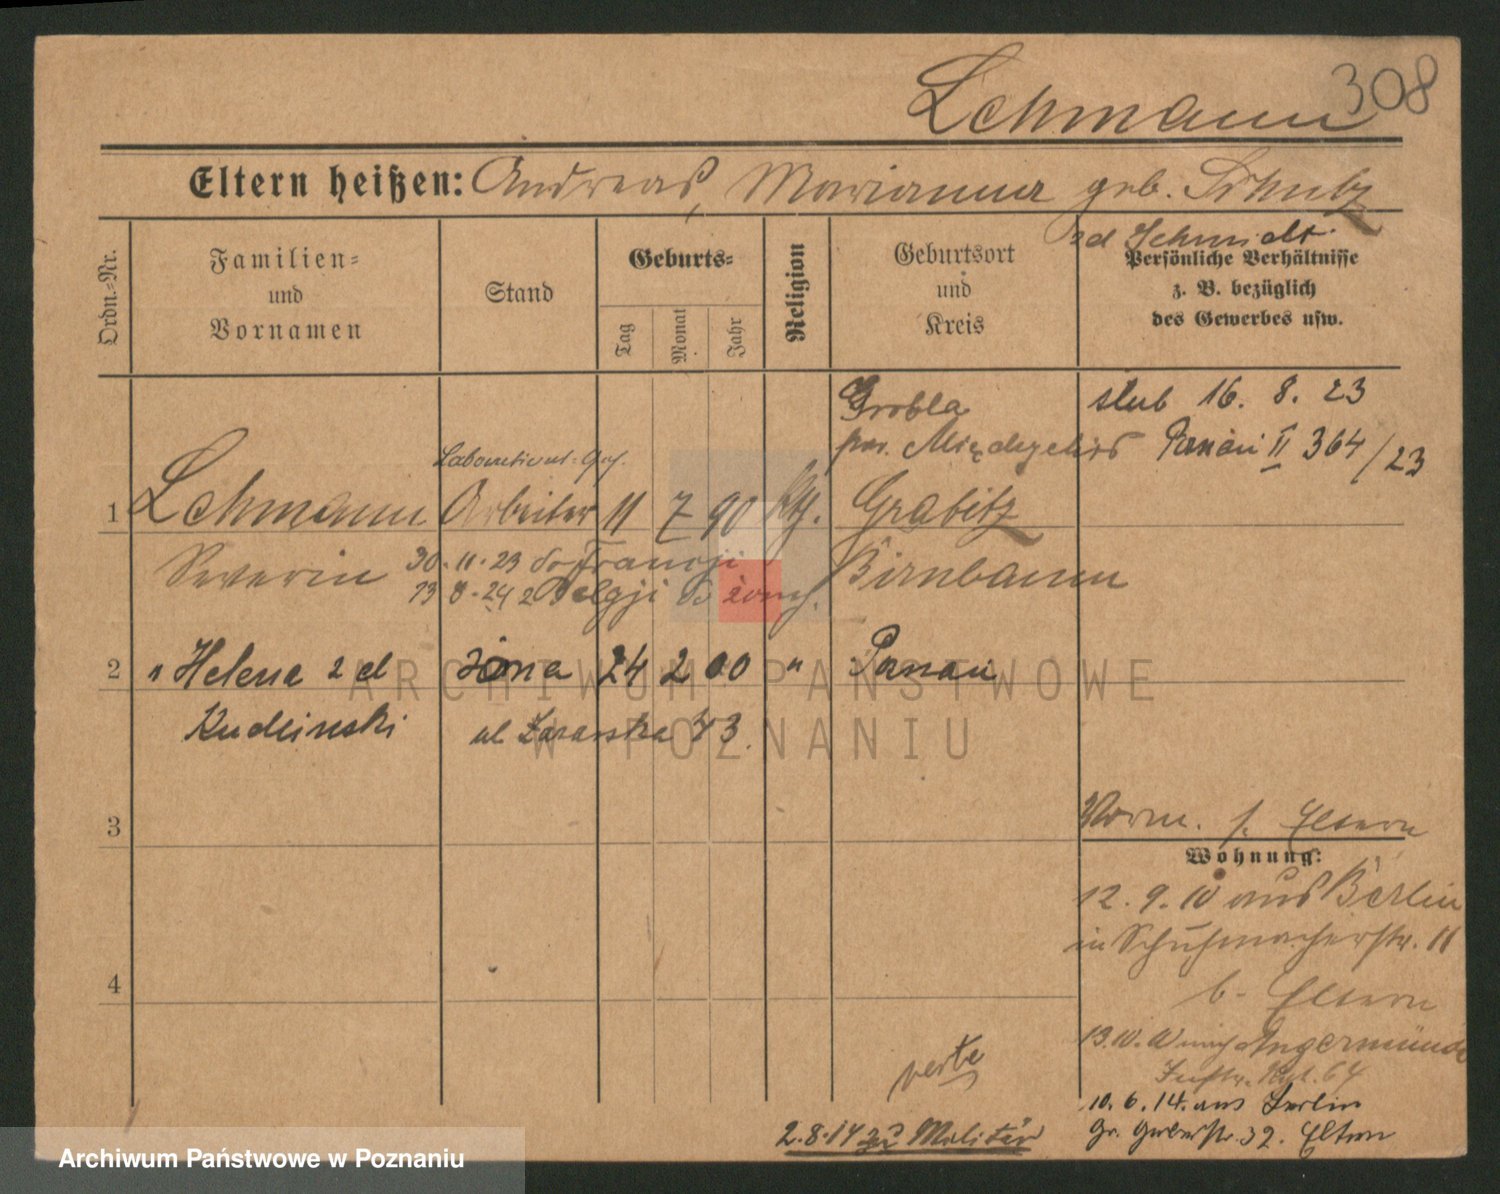 308
Lehmann
Eltern heißen: Andreas, Marianna geb. Schulz
zd Schmidt
Ordn.-Nr.
Familien-
und
Vornamen
Stand
Geburts-
Tag
Monat
Jahr
Religion
Geburtsort
und
Kreis
Persönliche Verhältnisse
z. B. bezüglich
des Gewerbes usw.
Grobla
par.
ślub 16. 8. 23
Poznań II 364/23
1 Lehmann Arbeiter 11 7 90 kth. Grabitz
Severin 30.11.23 do Francji Birnbaum
13 8.24 z Belgji
2 " Helena z d żona 24 2 00 " Poznań
Kudlinski ul 43.
3
Vorm. s. Eltern
Wohnung:
12.9.10 aus Berlin
in Schuhmacherstr. 11
4
b. Eltern
13.10. Angermünde
Inftr. Rgt. 64
verte
10.6.14. aus Berlin
Gr. Gerberstr. 32. Eltern
2.8.14 zu Militär
ARCHIWUM PAŃSTWOWE
W POZNANIU
Archiwum Państwowe w Poznaniu